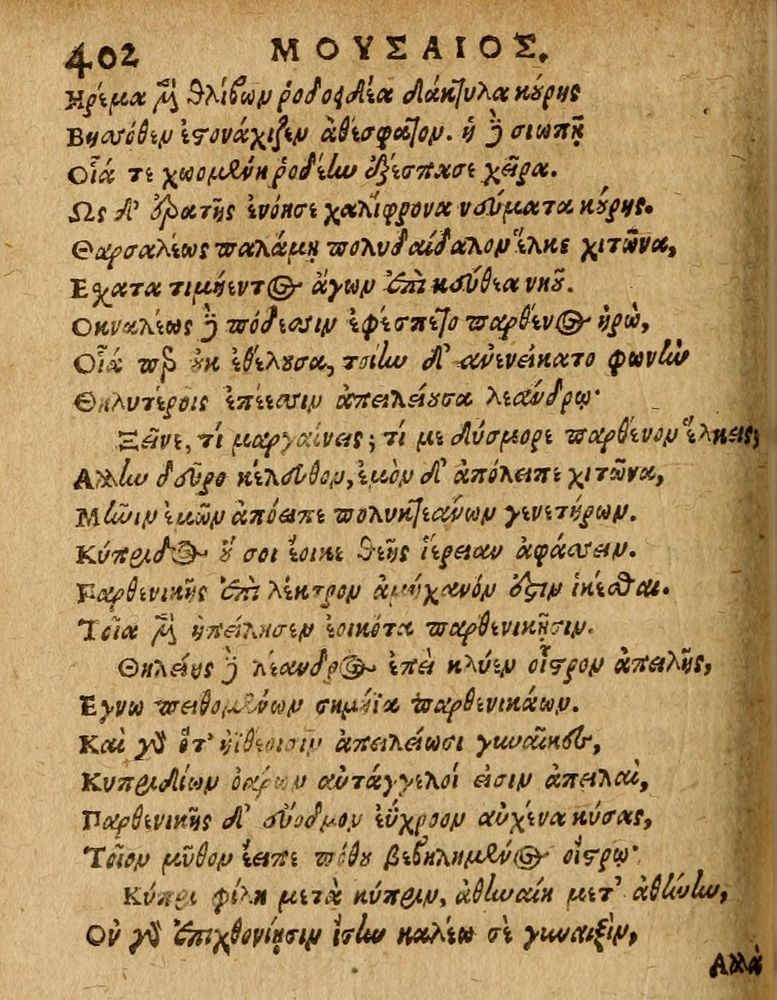 402 ΜΟΥΣΑΙΟΣ.
Ηρέμα μὲν θλίβων ῥοδοειδέα δάκτυλα κούρης
Βηασόθεν ἐστονάχιζεν ἀθέσφατον. ἡ δὲ σιωπῇ
Οἷά τε χωομένη ῥοδέην ἐξέσπασε χεῖρα.
Ως δ' ἐρατῆς ἐνόησε χαλίφρονα νεύματα κούρης.
Θαρσαλέως παλάμῃ πολυδαίδαλον ἕλκε χιτῶνα,
Εχατα τιμήεντος ἄγων ἐπὶ κεύθεα νηοῦ.
Οκναλέως δὲ πόδεσσιν ἐφέσπετο παρθένος ἡρὼ,
Οἷά περ οὐκ ἐθέλουσα, τοίην δ' ἀνενείκατο φωνὴν
Θηλυτέροις ἐπέεσσιν ἀπειλείουσα λεάνδρῳ·
Ξεῖνε, τί μαργαίνεις; τί με δύσμορε παρθένον ἕλκεις;
Αλλην δεῦρο κέλευθον, ἐμὸν δ' ἀπόλειπε χιτῶνα,
Μῆνιν ἐμῶν ἀπόειπε πολυκτεάνων γενετήρων.
Κύπριδος οὔ σοι ἔοικε θεῆς ἱέρειαν ἀφάσσειν.
Παρθενικῆς ἐπὶ λέκτρον ἀμήχανόν ἐστιν ἱκέσθαι.
Τοῖα μὲν ἠπείλησεν ἐοικότα παρθενικῇσιν.
Θηλείης δὲ λέανδρος ἐπεὶ κλύεν οἶστρον ἀπειλῆς,
Εγνω πειθομένων σημήϊα παρθενικάων.
Καὶ γὰρ ὅτ' ἠϊθέοισιν ἀπειλείωσι γυναῖκες,
Κυπριδίων ὀάρων αὐτάγγελοί εἰσιν ἀπειλαὶ,
Παρθενικῆς δ' εὔοδμον ἐΰχροον αὐχένα κύσας,
Τοῖον μῦθον ἔειπε πόθου βεβλημένος οἴστρῳ·
Κύπρι φίλη μετὰ κύπριν, ἀθηναίη μετ' ἀθήνην,
Οὐ γὰρ ἐπιχθονίῃσιν ἴσην καλέω σὲ γυναιξὶν,
Αλλὰ